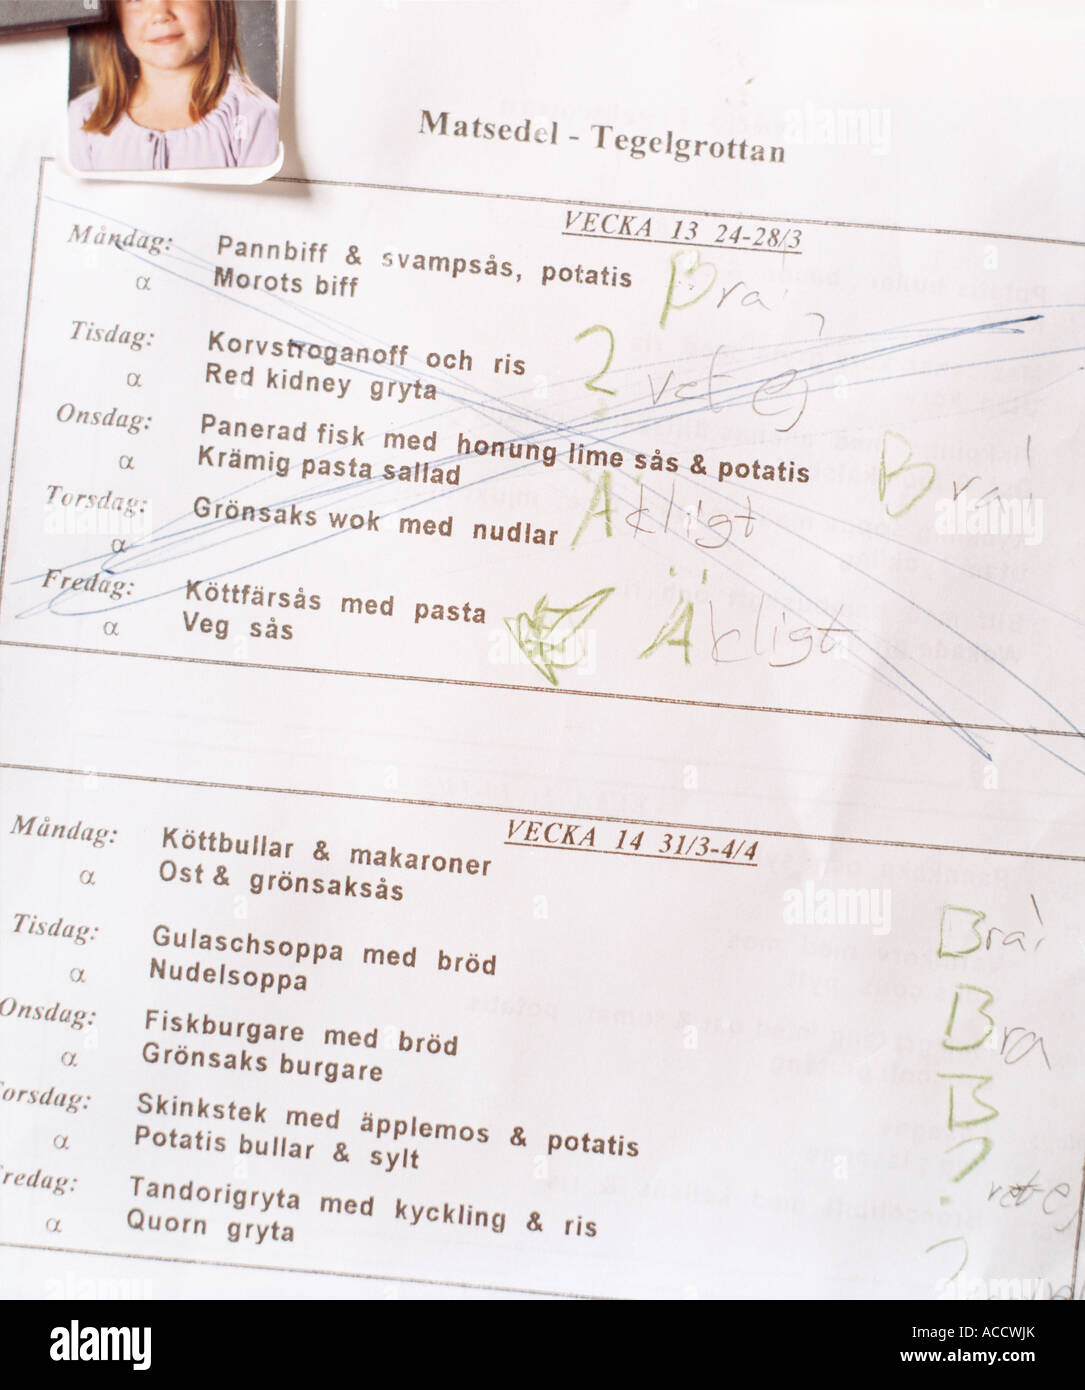 Matsedel - Tegelgrottan
VECKA 13 24-28/3
Måndag: Pannbiff & svampsås, potatis Bra!
α Morots biff
Tisdag: Korvstroganoff och ris ? vet ej
α Red kidney gryta
Onsdag: Panerad fisk med honung lime sås & potatis Bra!
α Krämig pasta sallad
Torsdag: Grönsaks wok med nudlar Äkligt
α
Fredag: Köttfärsås med pasta Äkligt
α Veg sås
VECKA 14 31/3-4/4
Måndag: Köttbullar & makaroner
α Ost & grönsaksås Bra!
Tisdag: Gulaschsoppa med bröd
α Nudelsoppa Bra
Onsdag: Fiskburgare med bröd
α Grönsaks burgare B
orsdag: Skinkstek med äpplemos & potatis
α Potatis bullar & sylt ? vet ej
redag: Tandorigryta med kyckling & ris
α Quorn gryta ?
alamy
Image ID: ACCWJK
www.alamy.com